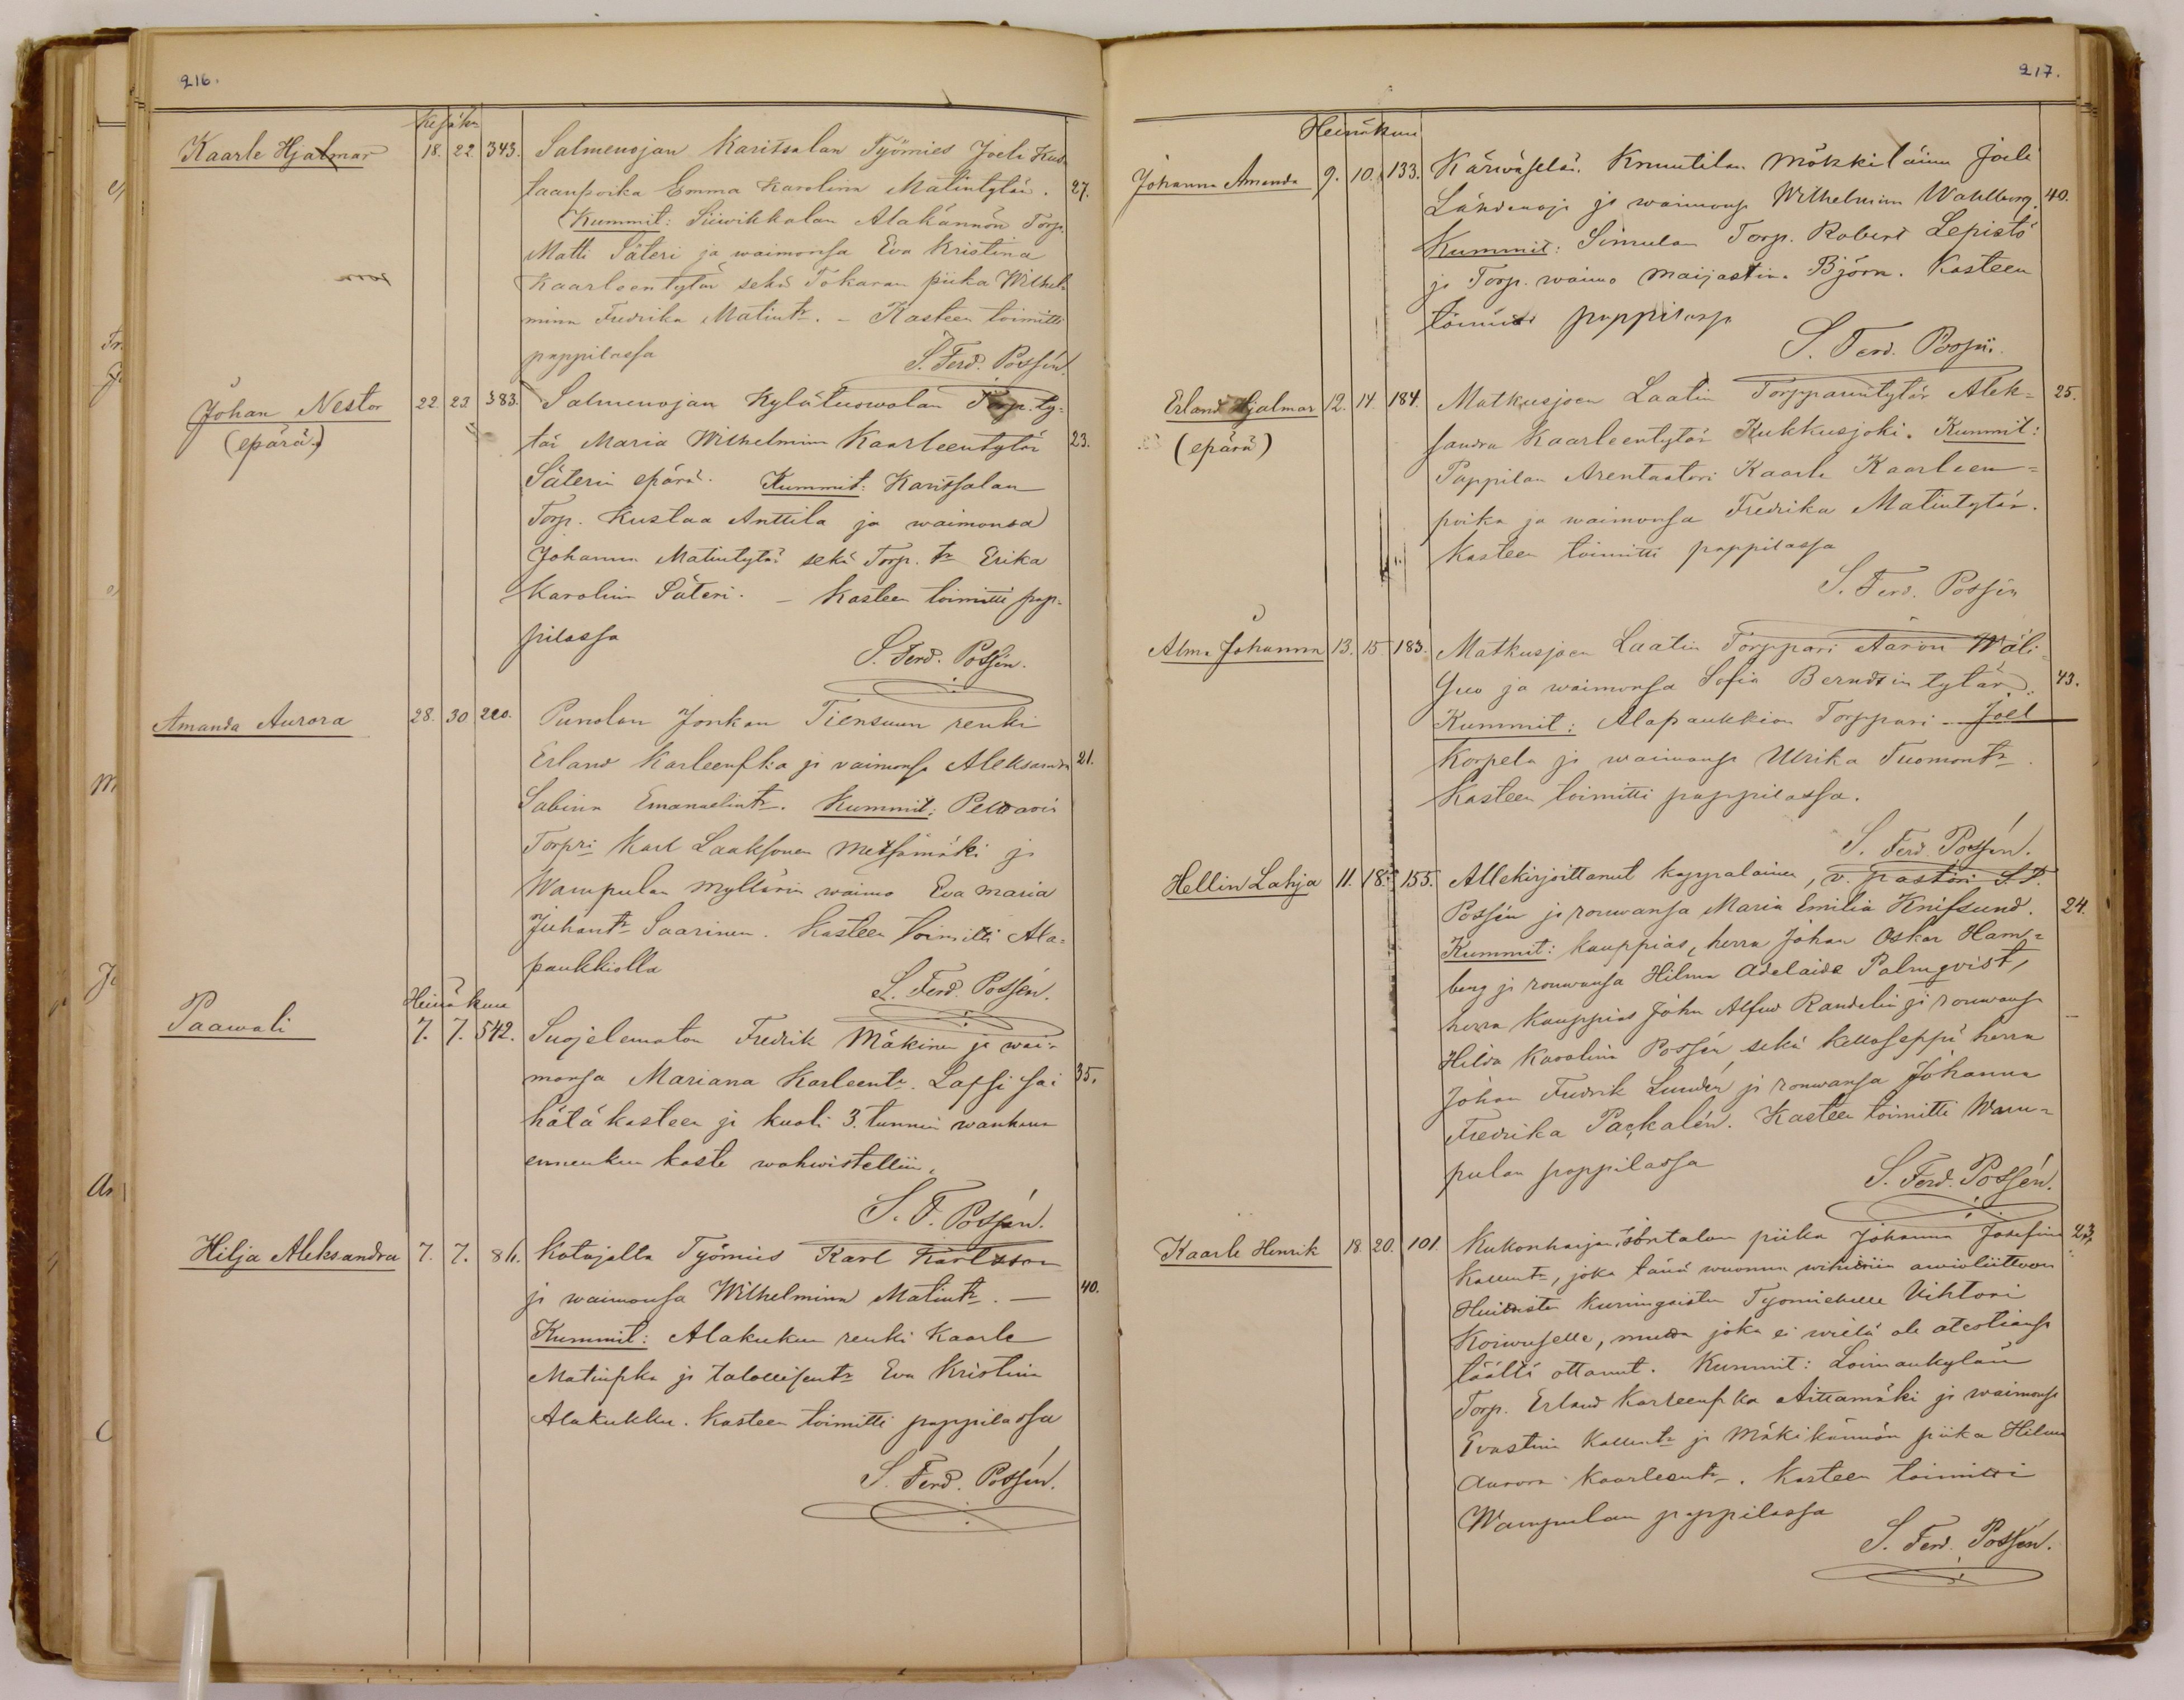 216.
Kesäk.
Kaarle Hjalmar 18. 22. 343. Salmenojan Karitsalan Työmies Joeli Kus-
taanpoika Emma Karolina Matintytär. 27.
Kummit: Siiwikkalan Alakännön Torp.
Matti Säteri ja waimonsa Eva Kristina
Kaarleentytär sekä Tokaran piika Wilhel-
mina Fredrika Matintr. – Kasteen toimitti
pappilassa S. Ferd. Possén.
Johan Nestor 22. 23. 383. Salmenojan Kylätuowolan Torp. ty-
(epärä.) tär Maria Wilhelmina Kaarleentytär 23.
Säterin epärä. Kummit: Karitsalan
Torp. Kustaa Anttila ja waimonsa
Johanna Matintytär sekä Torp. tr Erika
Karolina Säteri. – Kasteen toimitti pap-
pilassa
S. Ferd. Possén.
Amanda Aurora 28. 30. 220. Punolan Jonkan Tiensuun renki
Erland Karleenpka ja vaimonsa Aleksandra 21.
Sabina Emanuelintr. Kummit:
Torpri Karl Laaksonen Metsämäki ja
Wampulan Myllärin waimo Eva Maria
Juhantr Saarinen. Kasteen toimitti Ala-
paukkiolla
S. Ferd. Possén.
Heinäkuu
Paawali 7. 7. 542. Suojelematon Fredrik Mäkinen ja wai-
monsa Mariana Karleentr. Lapsi sai 35.
hätäkasteen ja kuoli 3. tunnin wanhana
ennenkun kaste wahwistettiin.
S. F. Possén.
Hilja Aleksandra 7. 7. 86. Kotajalta Työmies Karl Karlsson
ja waimonsa Wilhelmina Matintr. — 40.
Kummit: Alakukun renki Kaarle
Matinpka ja talollisentr Eva Kristina
Alakukku. Kasteen toimitti pappilassa
S. Ferd. Possén.
217.
Heinäkuu
Johanna Amanda 9. 10. 133. Kärwäselä. Knuutilan Mökkiläinen Joeli
Lähdenoja ja waimonsa Wilhelmina Wahlberg. 40.
Kummit: Simulan Torp. Robert Lepistö
ja Torp. waimo Maijastina Björn. Kasteen
toimitti pappilassa
S. Ferd. Possén.
Erland Hjalmar 12. 14. 184. Matkusjoen Laatin Torpparintytär Alek- 25.
(epärä) sandra Kaarleentytär Kukkusjoki. Kummit:
Pappilan Arentaatori Kaarle Kaarleen-
poika ja waimonsa Fredrika Matintytär.
Kasteen toimitti pappilassa
S. Ferd. Possén
Alma Johanna 13. 15. 183. Matkusjoen Laatin Torppari Aaron Wäli-
Yuo ja waimonsa Sofia Berndtintytär. 43.
Kummit: Alapaukkion Torppari Joel
Korpela ja waimonsa Ulrika Tuomontr.
Kasteen toimitti pappilassa.
S. Ferd. Possén.
Hellin Lahja 11. 18. 155. Allekirjoittanut kappalainen, v. pastori S. F.
Possén ja rouwansa Maria Emilia Knifsund. 24.
Kummit: kauppias, herra Johan Oskar Ham-
berg ja rouwansa Hilma Adelaide Palmqvist,
herra Kauppias John Alfred Randelin ja rouwansa
Hilda Karolina Possén sekä kelloseppä herra
Johan Fredrik Lundén ja rouwansa Johanna
Fredrika Packalén. Kasteen toimitti Wam-
pulan pappilassa
S. Ferd. Possén.
Kaarle Henrik 18. 20. 101. Kukonharjan Isontalon piika Johanna Josefina 23.
Kallentr, joka tänä wuonna wihittiin awioliittoon
Huittisten Kuningoisten Työmiehelle Vihtori
Koiwuselle, mutta joka ei wielä ole atestiansa
täältä ottanut. Kummit: Loimankylän
Torp. Erland Karleenpka Aittamäki ja waimonsa
Evastina Kallentr ja Mäkikännön piika Hilma
Aurora Kaarleentr. Kasteen toimitti
Wampulan pappilassa
S. Ferd. Possén.